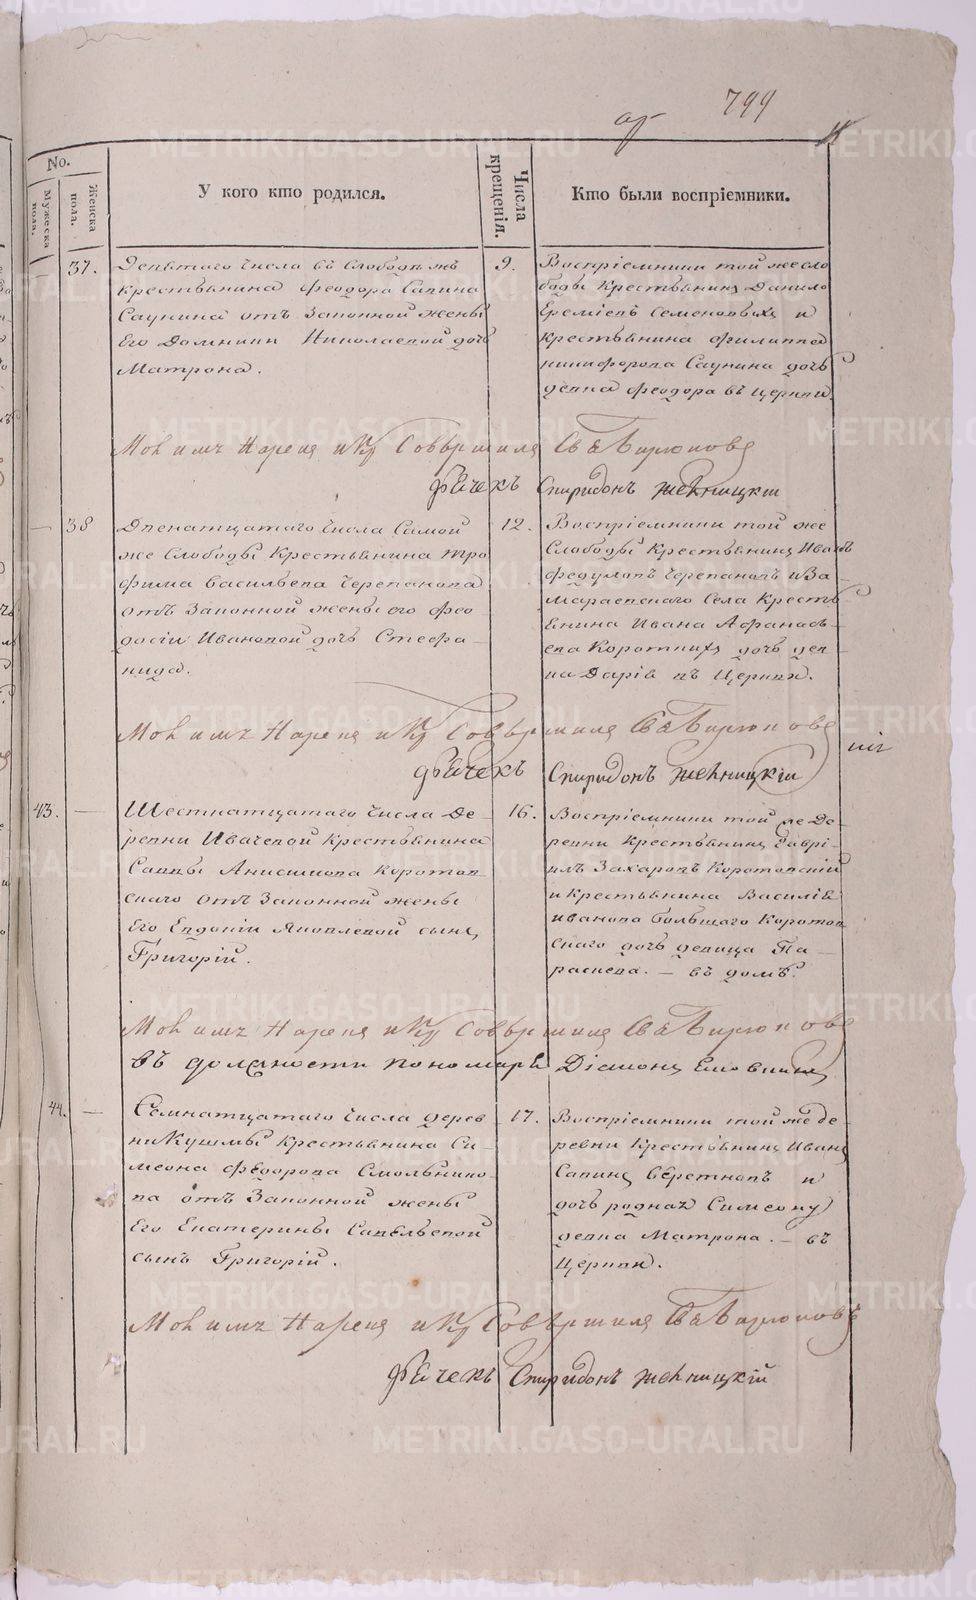 799
No.
Мужеска пола.
Женска пола.
У кого кто родился.
Числа крещенія.
Кто были воспріемники.
37.
Девятаго числа въ слободѣ жъ
крестьянина Феодора Савина
Саунина отъ законной жены
его Домники Николаевой дочь
Матрона.
9.
Воспріемники той же сло
боды крестьянинъ Данило
Еремѣевъ Семеновыхъ и
крестьянина Филиппа
Никифорова Саунина дочь
девка Феодора въ церкви.
Мол: имя: Нарекъ и Кр: Совершилъ Св: Бирюковъ
Дьячекъ Спиридонъ
38
Двенатцатаго числа Самой
же слободы Крестьянина Тро
фима Васильева Черепанова
отъ законной жены его Фео
досіи Ивановой дочь Стефа-
нида.
12.
Воспріемники той же
Слободы Крестьянинъ Иванъ
Федуловъ Черепановъ и За-
мараевскаго Села Кресть
янина Ивана Афанась-
ева Коротких дочь дев-
ка Дарія въ Церкви.
Мол: имя: Нарекъ и Кр: Совершилъ Св: Бирюковъ
Дьячекъ Спиридонъ
43.
Шестнатцатаго числа Де-
ревни Ивачевой Крестьянина
Саввы Анисимова Коротов-
скаго отъ Законной жены
Его Евдокіи Яковлевой сынъ
Григорій.
16.
Воспріемники той же Де-
ревни Крестьянинъ Гаврі-
илъ Захаровъ Коротовскій
и крестьянина Василія
Иванова большаго Коротов
скаго дочь девица Па-
раскева. - въ домѣ.
Мол: имя: Нарекъ и Кр: Совершилъ Св: Бирюковъ
въ должности пономаря
44.
Семнатцатаго числа дерев
ни Кушмы крестьянина Си-
меона Федорова Смольнико-
ва отъ Законной жены
Его Екатерины Савельевой
сынъ Григорій.
17.
Воспріемники той же де-
ревни Крестьянинъ Иванъ
Савинъ Веретновъ и
дочь родная Симеону
девка Матрона. - въ
Церкви.
Мол: имя: Нарекъ и Кр: Совершилъ Св: Бирюковъ
Дьячекъ Спиридонъ
METRIKI.GASO-URAL.RU